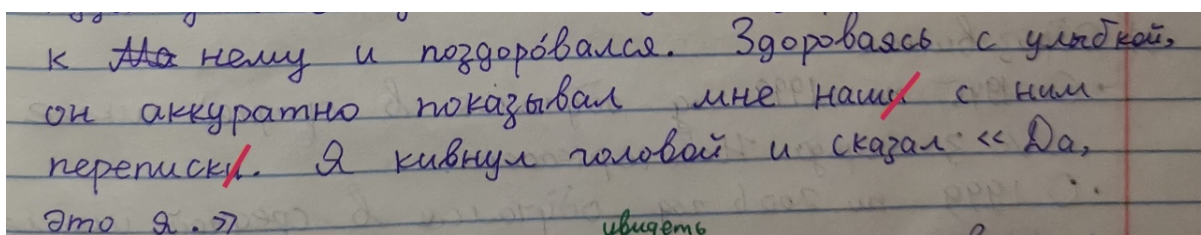 к нему и поздоро́вался. Здороваясь с улыбкой,
он аккуратно показывал мне наши с ним
переписки. Я кивнул головой и сказал « Да,
это я. »
увидеть